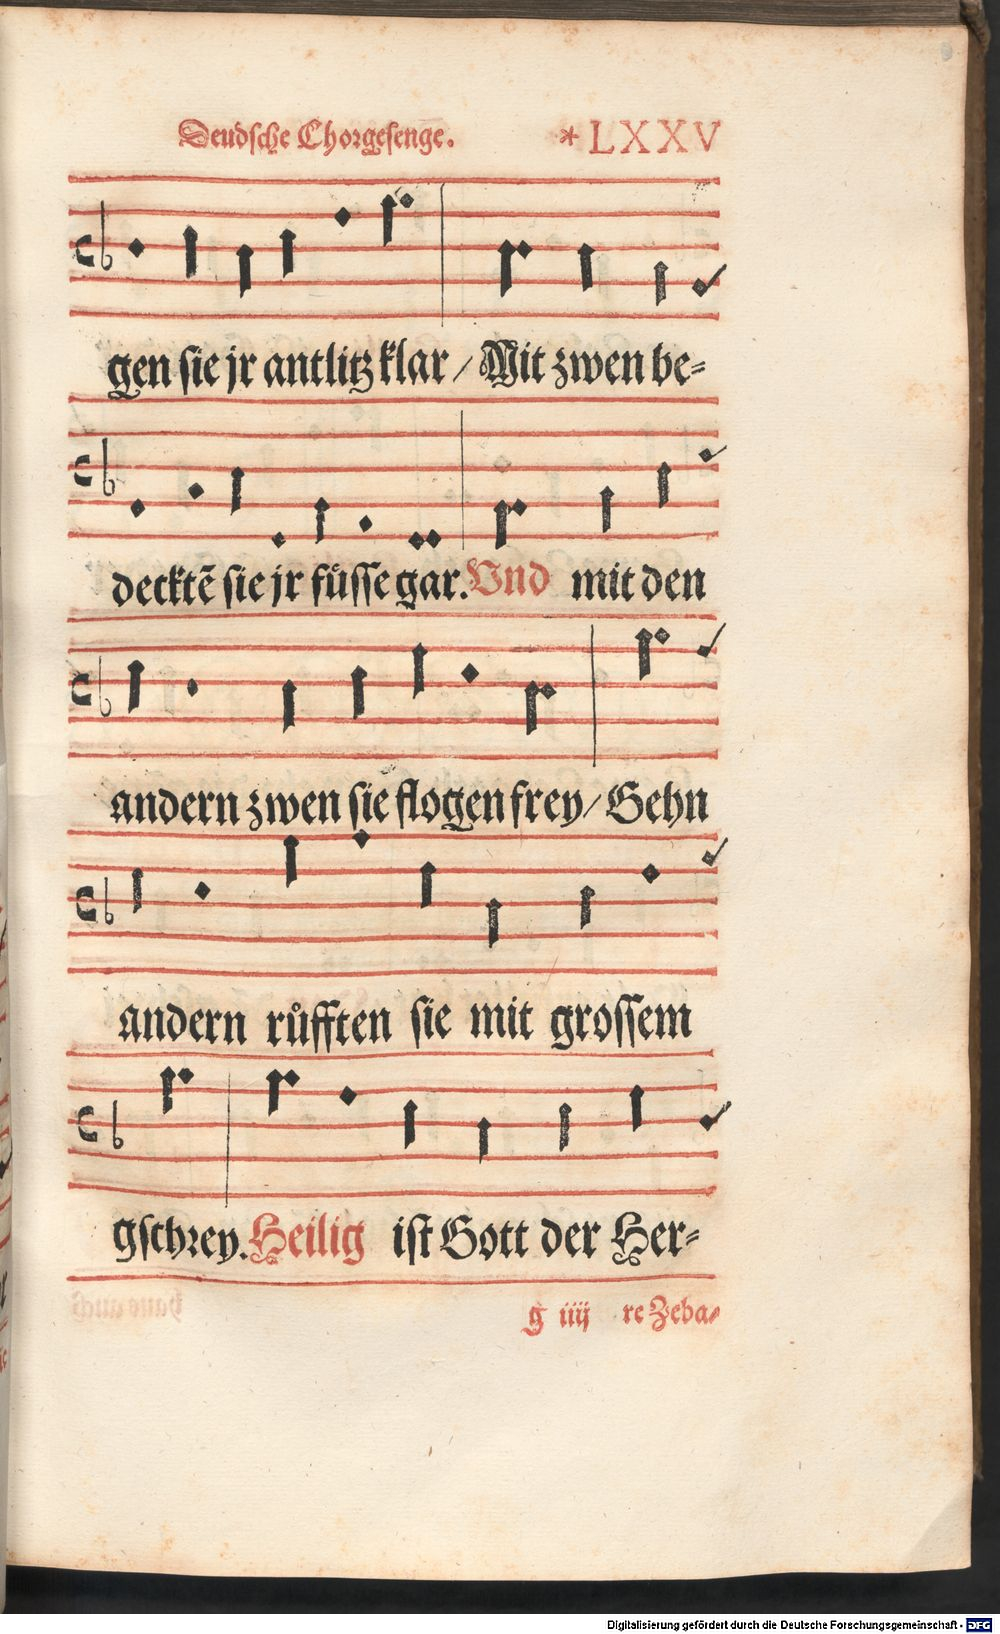 Deudsche Chorgesenge. * LXXV
gen sie jr antlitz klar / Mit zwen be=
decktē sie jr füsse gar. Vnd mit den
andern zwen sie flogen frey / Gehn
andern růfften sie mit grossem
gschrey. Heilig ist Gott der Her=
g iiij re Zeba=
Digitalisierung gefördert durch die Deutsche Forschungsgemeinschaft - DFG